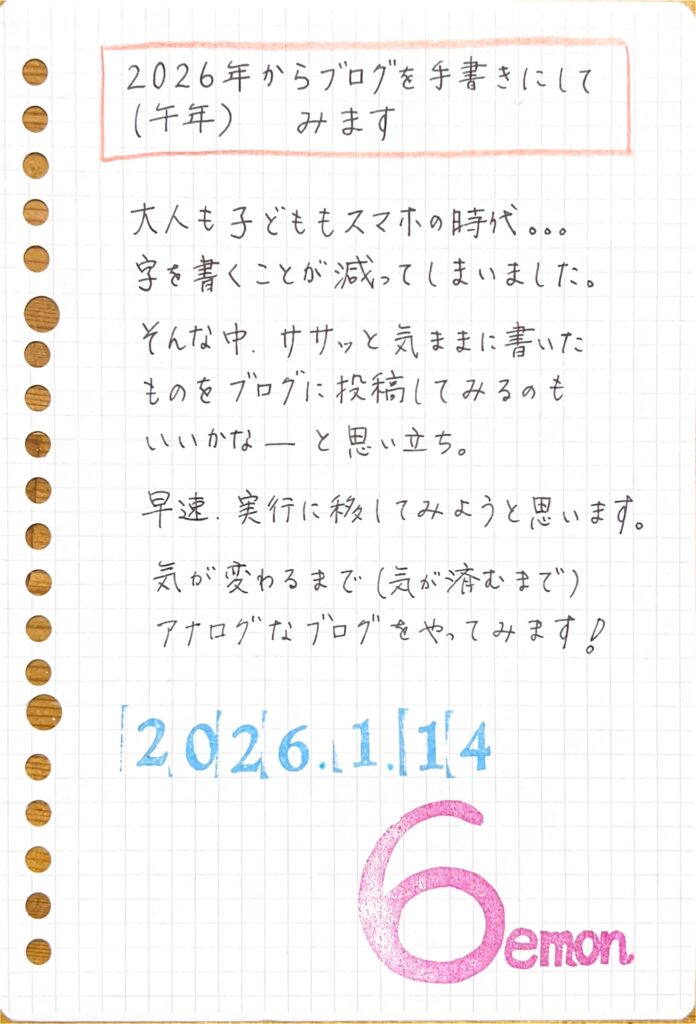 2026年からブログを手書きにして
(午年) みます
大人も子どももスマホの時代。。。
字を書くことが減ってしまいました。
そんな中、ササッと気ままに書いた
ものをブログに投稿してみるのも
いいかなーと思い立ち。
早速、実行に移してみようと思います。
気が変わるまで(気が済むまで)
アナログなブログをやってみます!
2026.1.14
6emon